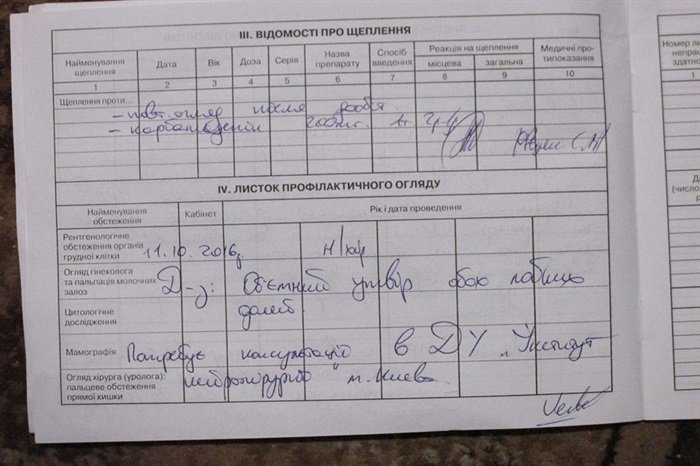 III. ВІДОМОСТІ ПРО ЩЕПЛЕННЯ
Найменування щеплення Дата Вік Доза Серія Назва препарату Спосіб введення Реакція на щеплення місцева загальна Медичні про-типоказання
1 2 3 4 5 6 7 8 9 10
Щеплення проти...
– повт. огляд після дообст.
–
IV. ЛИСТОК ПРОФІЛАКТИЧНОГО ОГЛЯДУ
Найменування обстеження Кабінет Рік і дата проведення
Рентгенологічне обстеження органів грудної клітки
11.10.2016р. н/хір
Огляд гінеколога та пальпація молочних залоз
Д-з: Об'ємний утвір обох лобних
Цитологічне дослідження
долей
Мамографія
Потребує консультації в ДУ „Інститут
Огляд хірурга (уролога): пальцеве обстеження прямої кишки
нейрохірургії" м. Києва.
Номер ли
неправ
здатно
Д
(число,
р